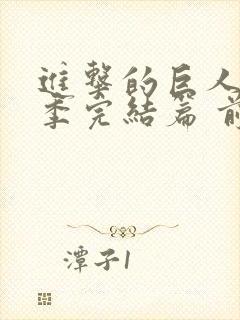 進擊的巨人
季完結篇 前
潭子1